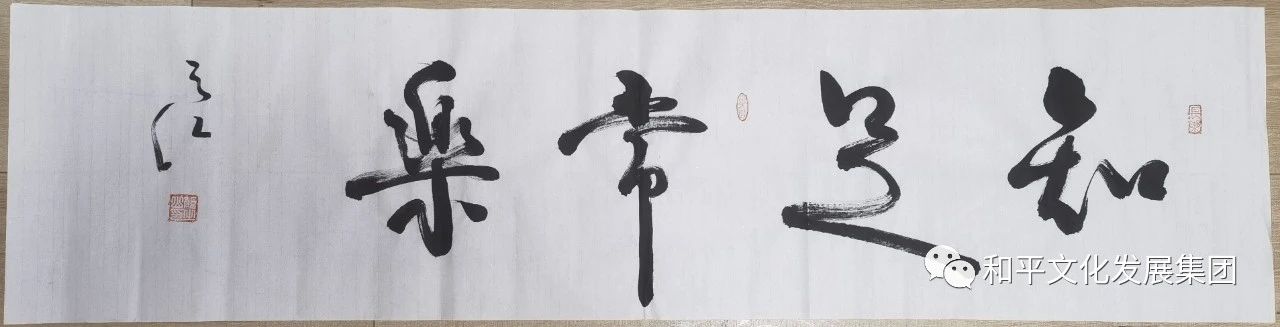 知足常樂
和平文化发展集团